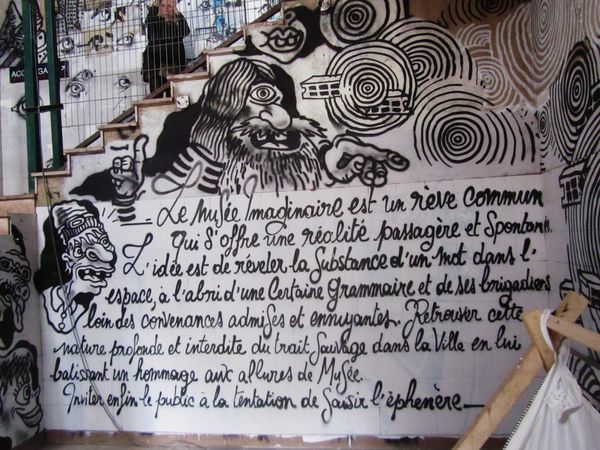 ACC
Le Musée Imaginaire est un rêve commun
qui s'offre une réalité passagère et Spontan
L'idée est de révéler la Substance d'un mot dans l'
espace, à l'abri d'une Certaine Grammaire et de ses brigadiers
loin des convenances admises et ennuyantes. Retrouver cette
nature profonde et interdite du trait Sauvage dans la Ville en lui
batissant un hommage aux allures de Musée.
Inviter enfin le public à la tentation de Saisir l'éphémère